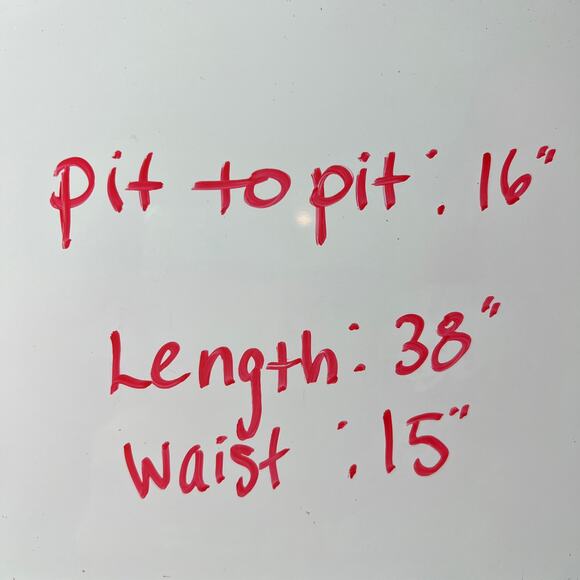 pit to pit: 16"
Length: 38"
Waist : 15"